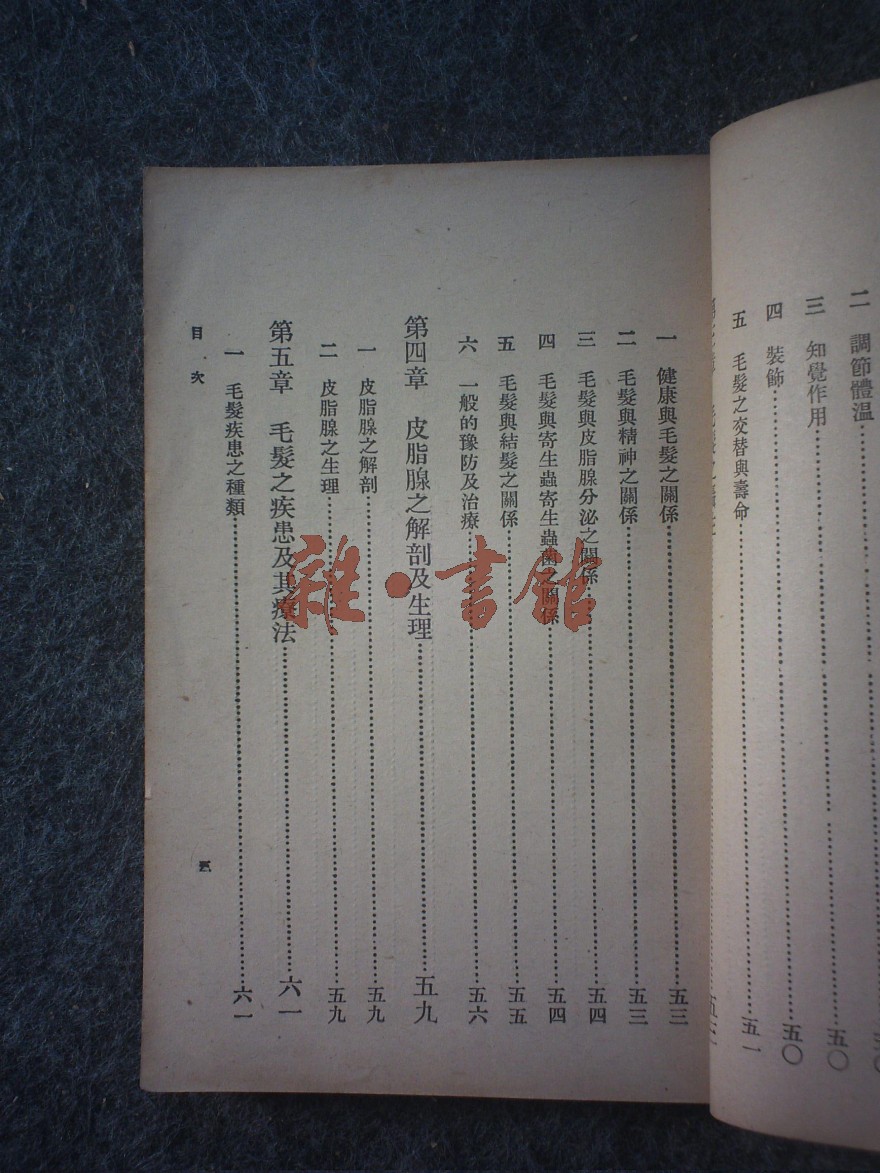 二　調節體溫
三　知覺作用……五〇
四　裝飾……五〇
五　毛髮之交替與壽命……五一
一　健康與毛髮之關係……五三
二　毛髮與精神之關係……五三
三　毛髮與皮脂腺分泌之關係……五四
四　毛髮與寄生蟲寄生蟲菌之關係……五四
五　毛髮與結髮之關係……五五
六　一般的豫防及治療……五六
第四章　皮脂腺之解剖及生理……五九
一　皮脂腺之解剖……五九
二　皮脂腺之生理……五九
第五章　毛髮之疾患及其療法……六一
一　毛髮疾患之種類……六一
目次
三
雜·書館